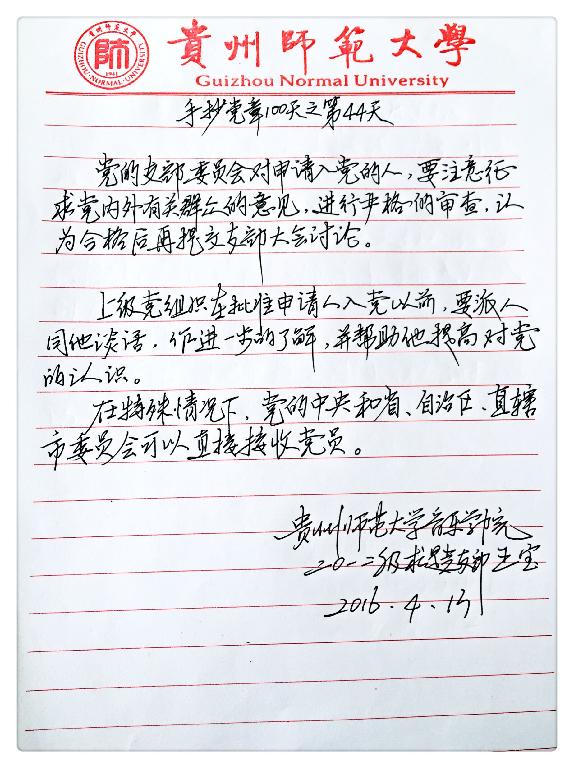 貴州師範大學
Guizhou Normal University
GUIZHOU·NORMAL·UNIVERSITY
師
1941
手抄党章100天之第44天
党的支部委员会对申请入党的人，要注意征
求党内外有关群众的意见，进行严格的审查，认
为合格后再提交支部大会讨论。
上级党组织在批准申请人入党以前，要派人
同他谈话，作进一步的了解，并帮助他提高对党
的认识。
在特殊情况下，党的中央和省、自治区、直辖
市委员会可以直接接收党员。
贵州师范大学音乐学院
二〇一二级支部 王宝
2016.4.13